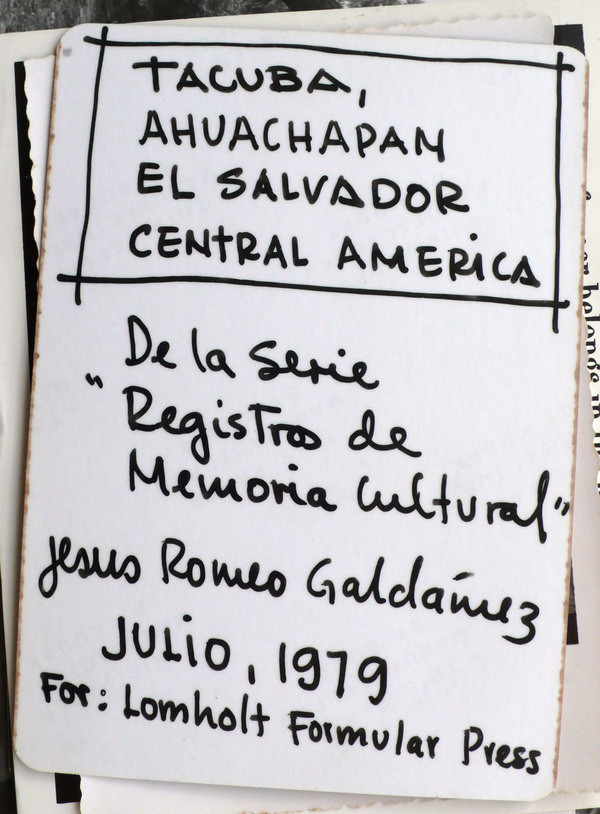 TACUBA,
AHUACHAPAN
EL SALVADOR
CENTRAL AMERICA
De la Serie
"Registros de
Memoria Cultural"
Jesus Romeo Galdámez
JULIO, 1979
For: Lomholt Formular Press
belongs in